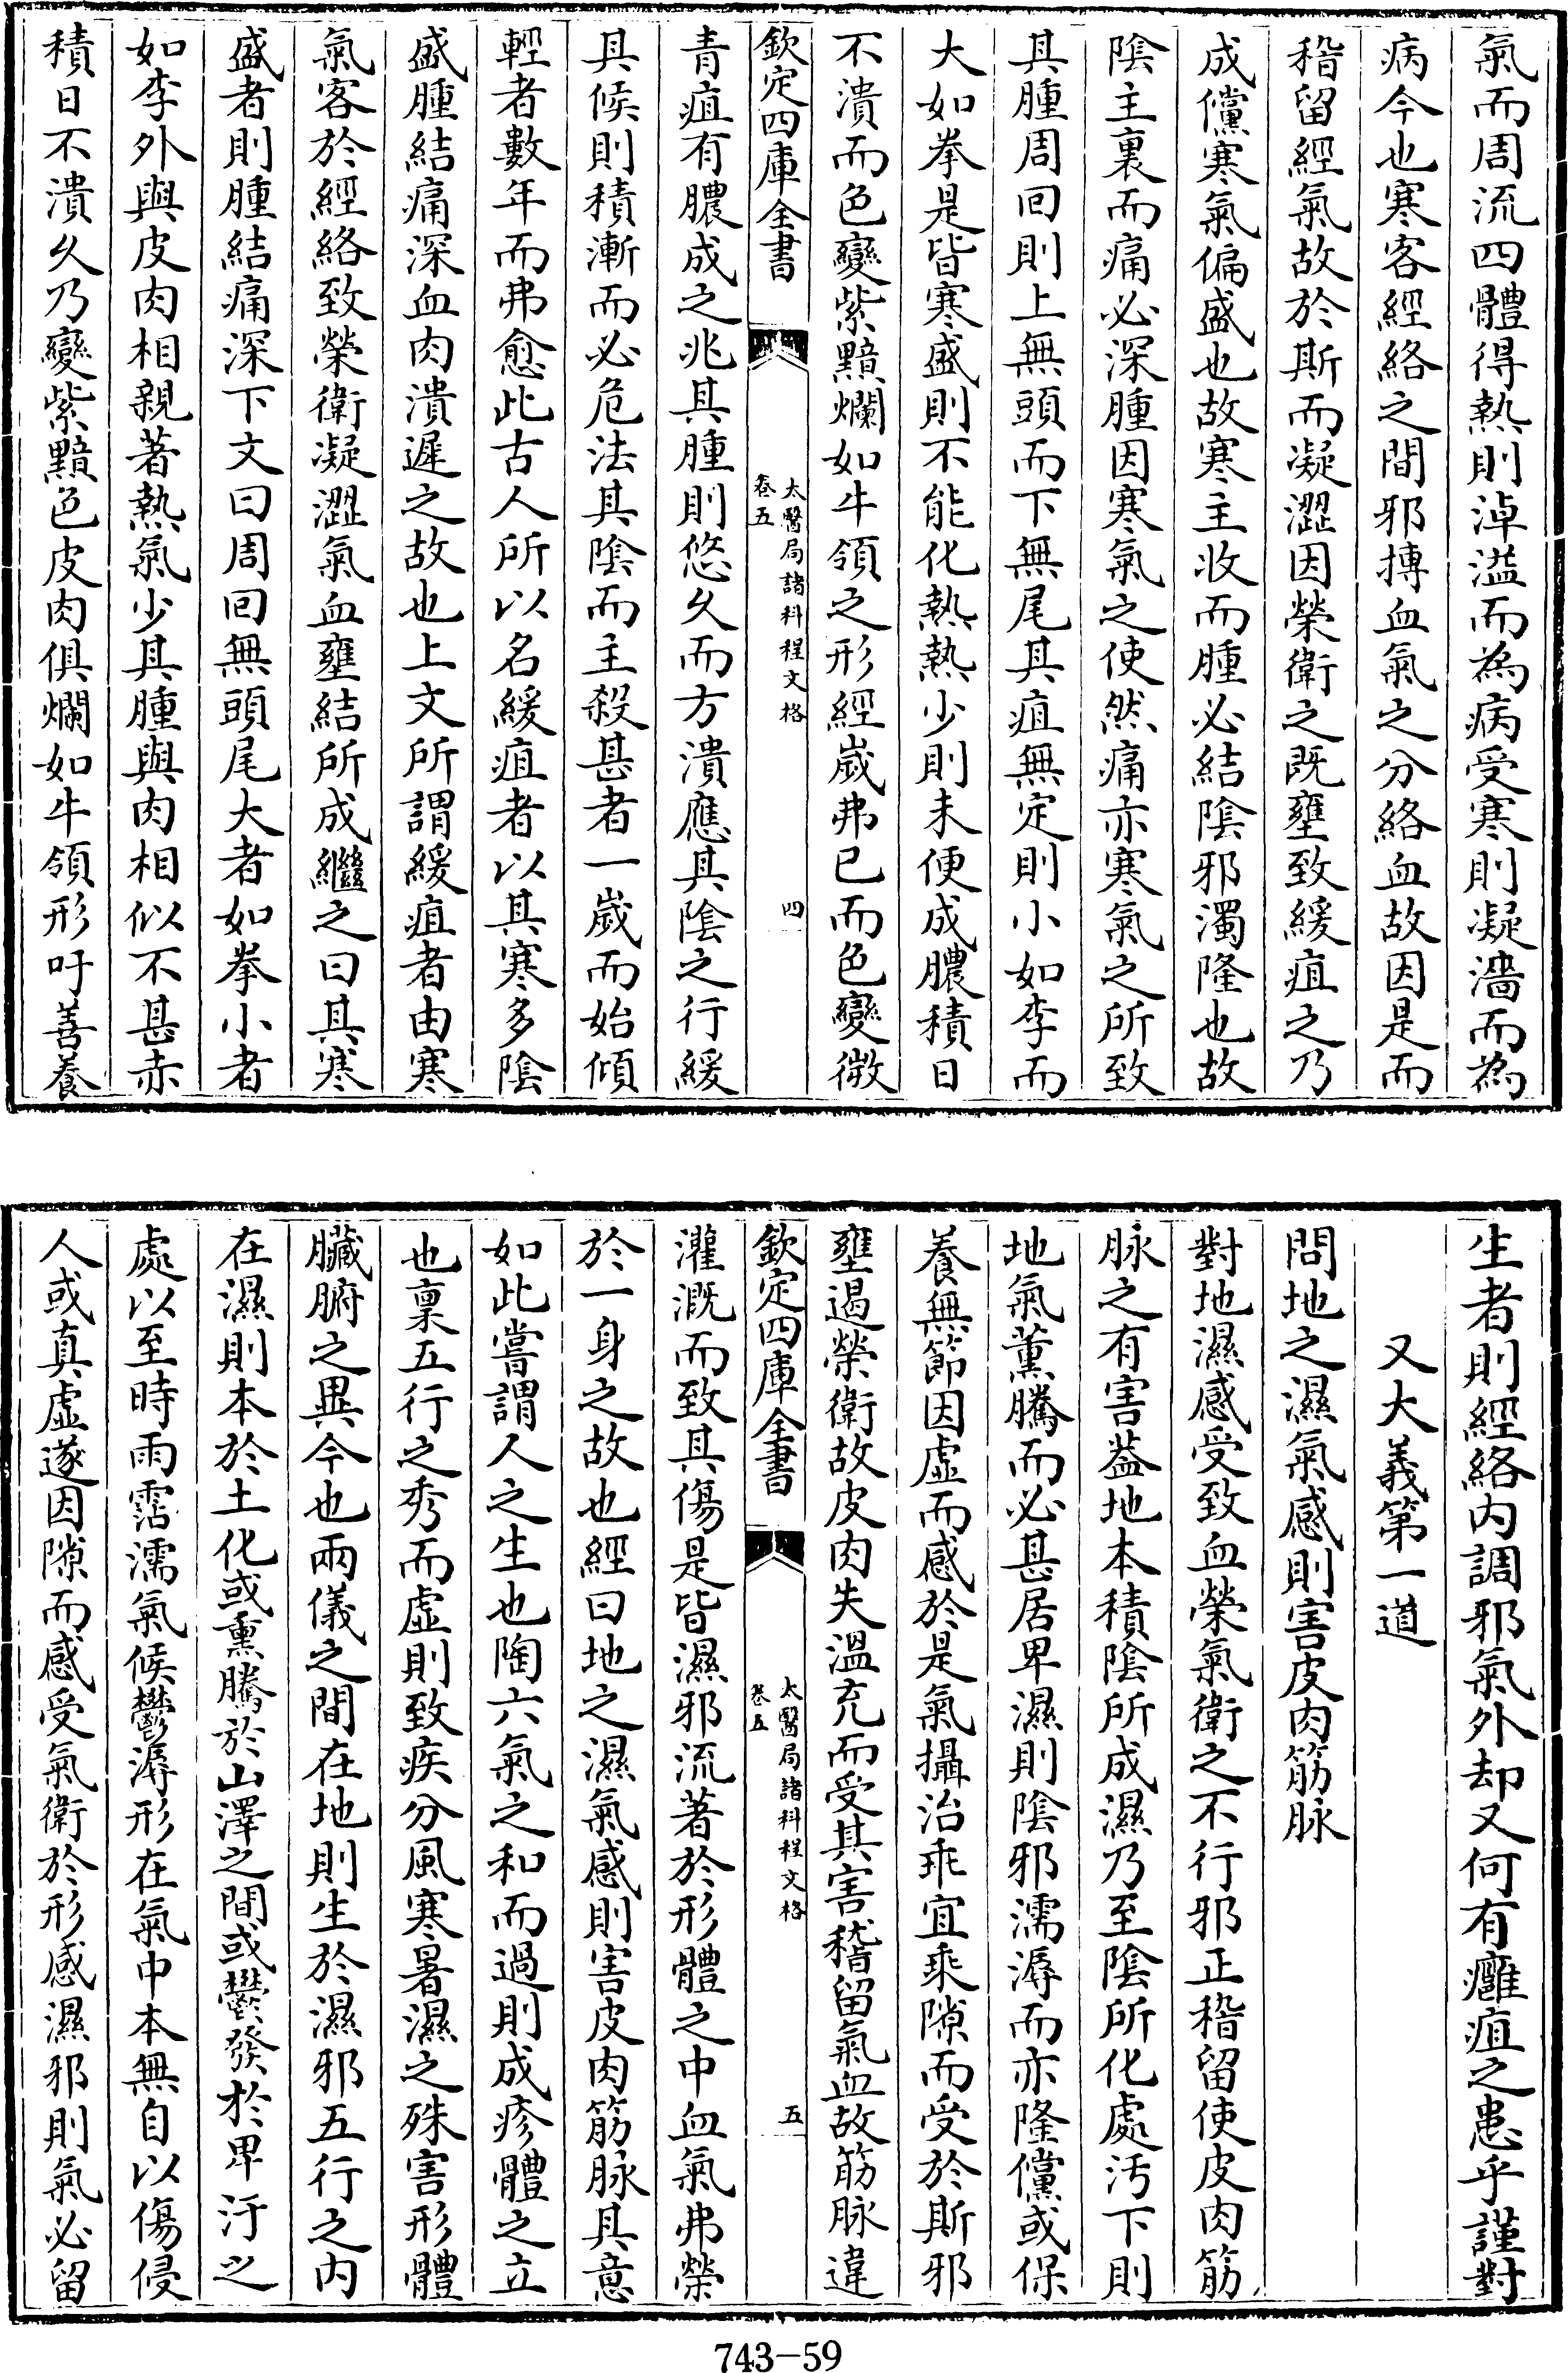 氣而周流四體得熱則淖溢而為病受寒則凝濇而為
病今也寒客經絡之間邪搏血氣之分絡血故因是而
稽留經氣故於斯而凝澀因榮衛之既壅致緩疽之乃
成儻寒氣偏盛也故寒主收而腫必結陰邪濁隆也故
陰主裏而痛必深腫因寒氣之使然痛亦寒氣之所致
其腫周回則上無頭而下無尾其疽無定則小如李而
大如拳是皆寒盛則不能化熱熱少則未便成膿積日
不潰而色變紫黯爛如牛領之形經歲弗已而色變微
欽定四庫全書
太醫局諸科程文格
卷五
四
青疽有膿成之兆其腫則悠久而方潰應其陰之行緩
其候則積漸而必危法其陰而主殺甚者一歲而始傾
輕者數年而弗愈此古人所以名緩疽者以其寒多陰
盛腫結痛深血肉潰遲之故也上文所謂緩疽者由寒
氣客於經絡致榮衛凝澀氣血壅結所成繼之曰其寒
盛者則腫結痛深下文曰周回無頭尾大者如拳小者
如李外與皮肉相親著熱氣少其腫與肉相似不甚赤
積日不潰久乃變紫黯色皮肉俱爛如牛領形吁善養
生者則經絡內調邪氣外却又何有癰疽之患乎謹對
又大義第一道
問地之濕氣感則害皮肉筋脉
對地濕感受致血榮氣衛之不行邪正稽留使皮肉筋
脉之有害葢地本積陰所成濕乃至陰所化處汚下則
地氣薰騰而必甚居卑濕則陰邪濡溽而亦隆儻或保
養無節因虛而感於是氣攝治乖宜乘隙而受於斯邪
壅遏榮衛故皮肉失溫充而受其害稽留氣血故筋脉違
欽定四庫全書
太醫局諸科程文格
卷五
五
灌溉而致其傷是皆濕邪流著於形體之中血氣弗榮
於一身之故也經曰地之濕氣感則害皮肉筋脉其意
如此嘗謂人之生也陶六氣之和而過則成疹體之立
也稟五行之秀而虛則致疾分風寒暑濕之殊害形體
臟腑之異今也兩儀之間在地則生於濕邪五行之內
在濕則本於土化或熏騰於山澤之間或鬱發於卑汙之
處以至時雨霑濡氣候鬱溽形在氣中本無自以傷侵
人或真虛遂因隙而感受氣衛於形感濕邪則氣必留
743-59